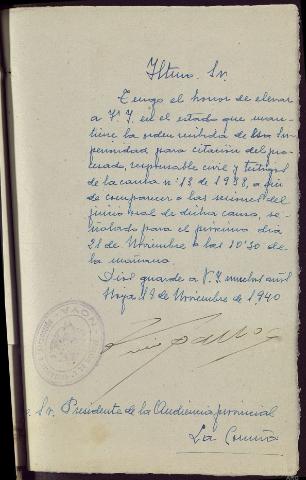 Iltmo. Sr.
Tengo el honor de elevar
a V. I. en el estado que man-
tiene la orden recibida de esa Su-
perioridad para citación del pro-
cesado, responsable civil y testigos
de la causa nº 13 de 1938, a fin
de comparecer a las sesiones del
juicio oral de dicha causa, se-
ñalado para el próximo día
28 de Noviembre a las 10'30 de
la mañana.
Dios guarde a V. I. muchos años
Noya 19 de Noviembre de 1940
NOYA
Sr. Presidente de la Audiencia provincial
La Coruña